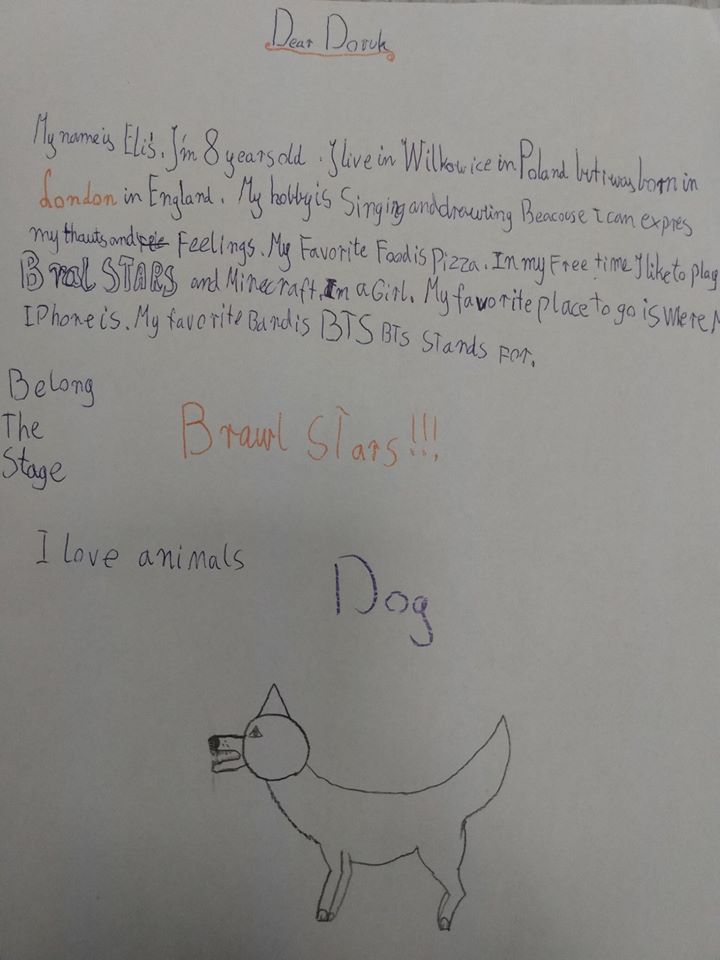 Dear Doruk
My name is Elis. I'm 8 years old. I live in Wilkowice in Poland but i was born in
London in England. My hobby is Singing and drawting Beacouse I can expres
my thauts and Feelings. My Favorite Food is Pizza. In my Free time I like to play
Bral STARS and Minecraft. Im a Girl. My favorite place to go is were
IPhone is. My favorite Band is BTS BTs Stands For.
Belong
The
Stage
Brawl STars!!!
I love animals
Dog